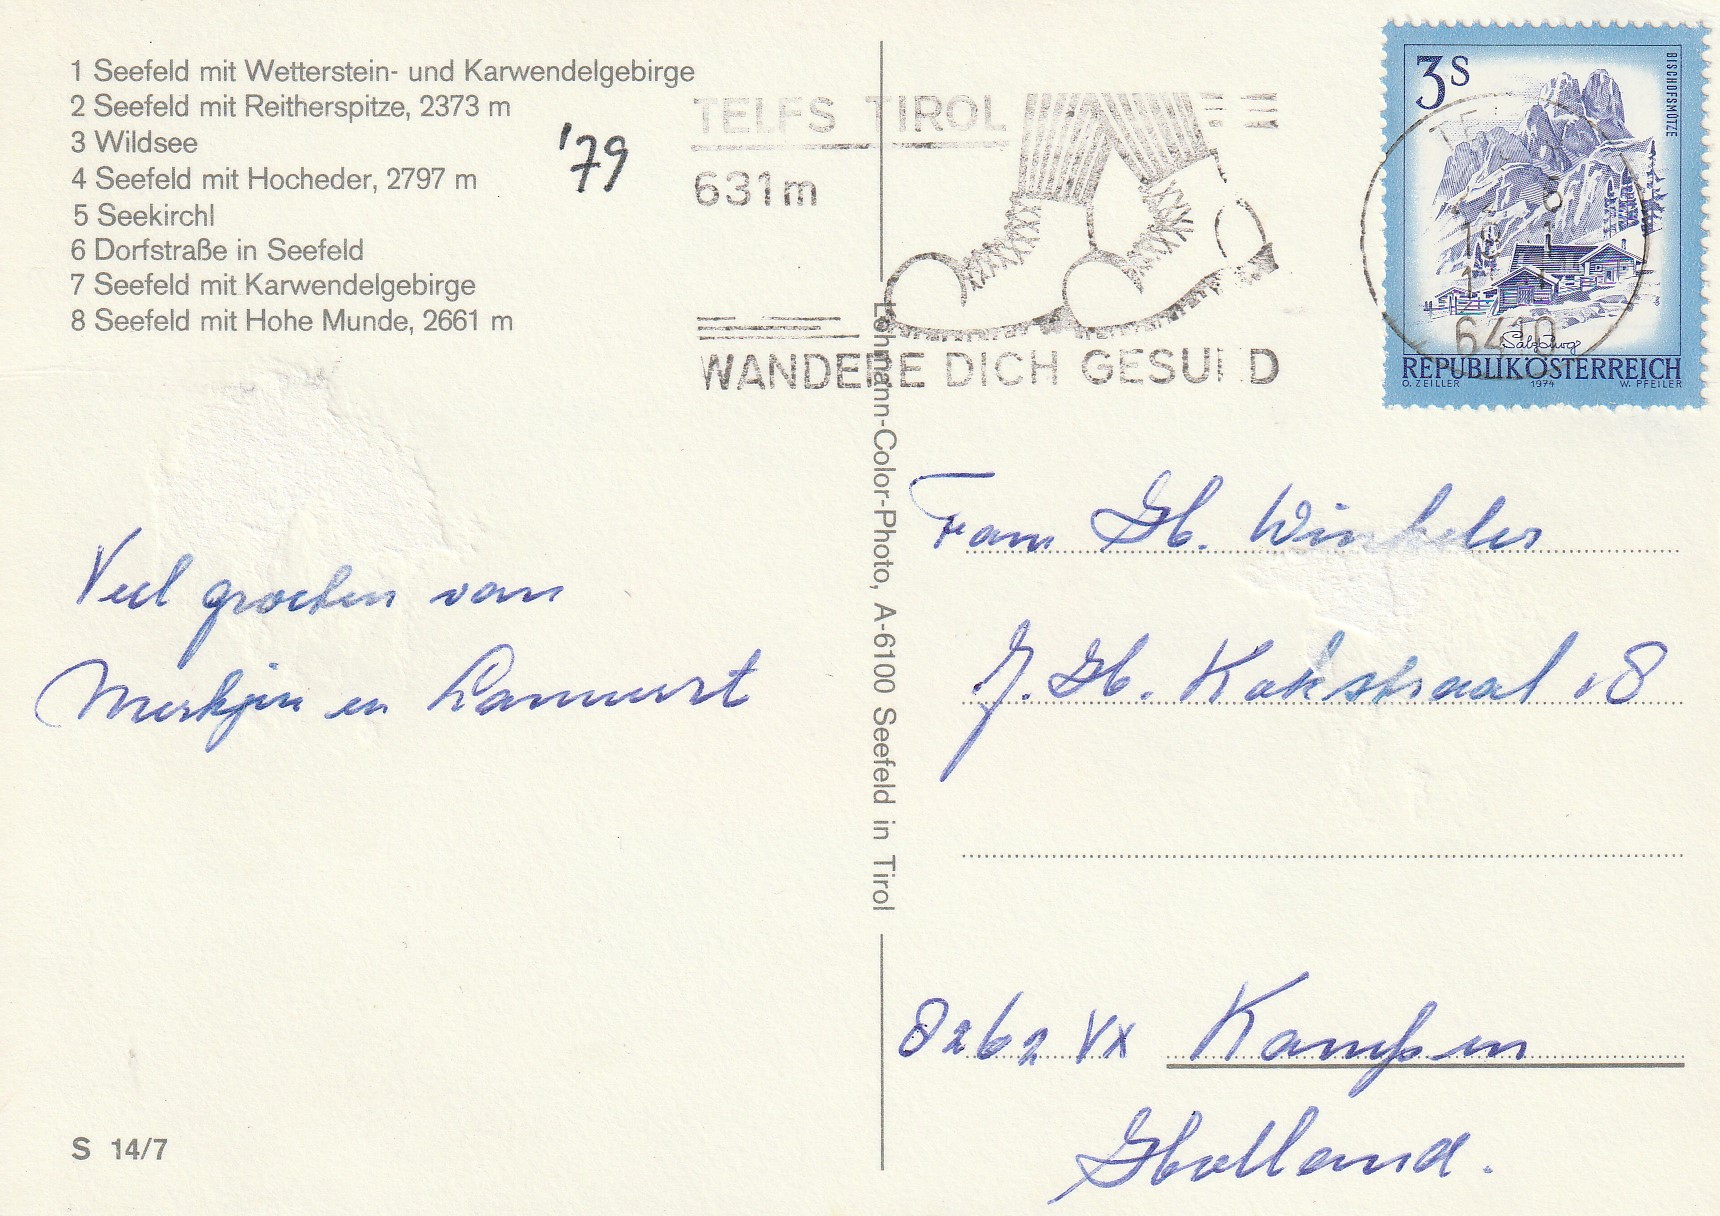 1 Seefeld mit Wetterstein- und Karwendelgebirge
2 Seefeld mit Reitherspitze, 2373 m
3 Wildsee
4 Seefeld mit Hocheder, 2797 m
5 Seekirchl
6 Dorfstraße in Seefeld
7 Seefeld mit Karwendelgebirge
8 Seefeld mit Hohe Munde, 2661 m
'79
TELFS TIROL
631m
WANDERE DICH GESUND
3S
BISCHOFSMÜTZE
6410
Salzburg
REPUBLIK ÖSTERREICH
O. ZEILLER 1974 W. PFEILER
Veel groeten van
Merkjen en Lammert
Lehmann-Color-Photo, A-6100 Seefeld in Tirol
Fam H. Winkeler
J. H. Kokstraat 18
8262 VX Kampen
Holland.
S 14/7